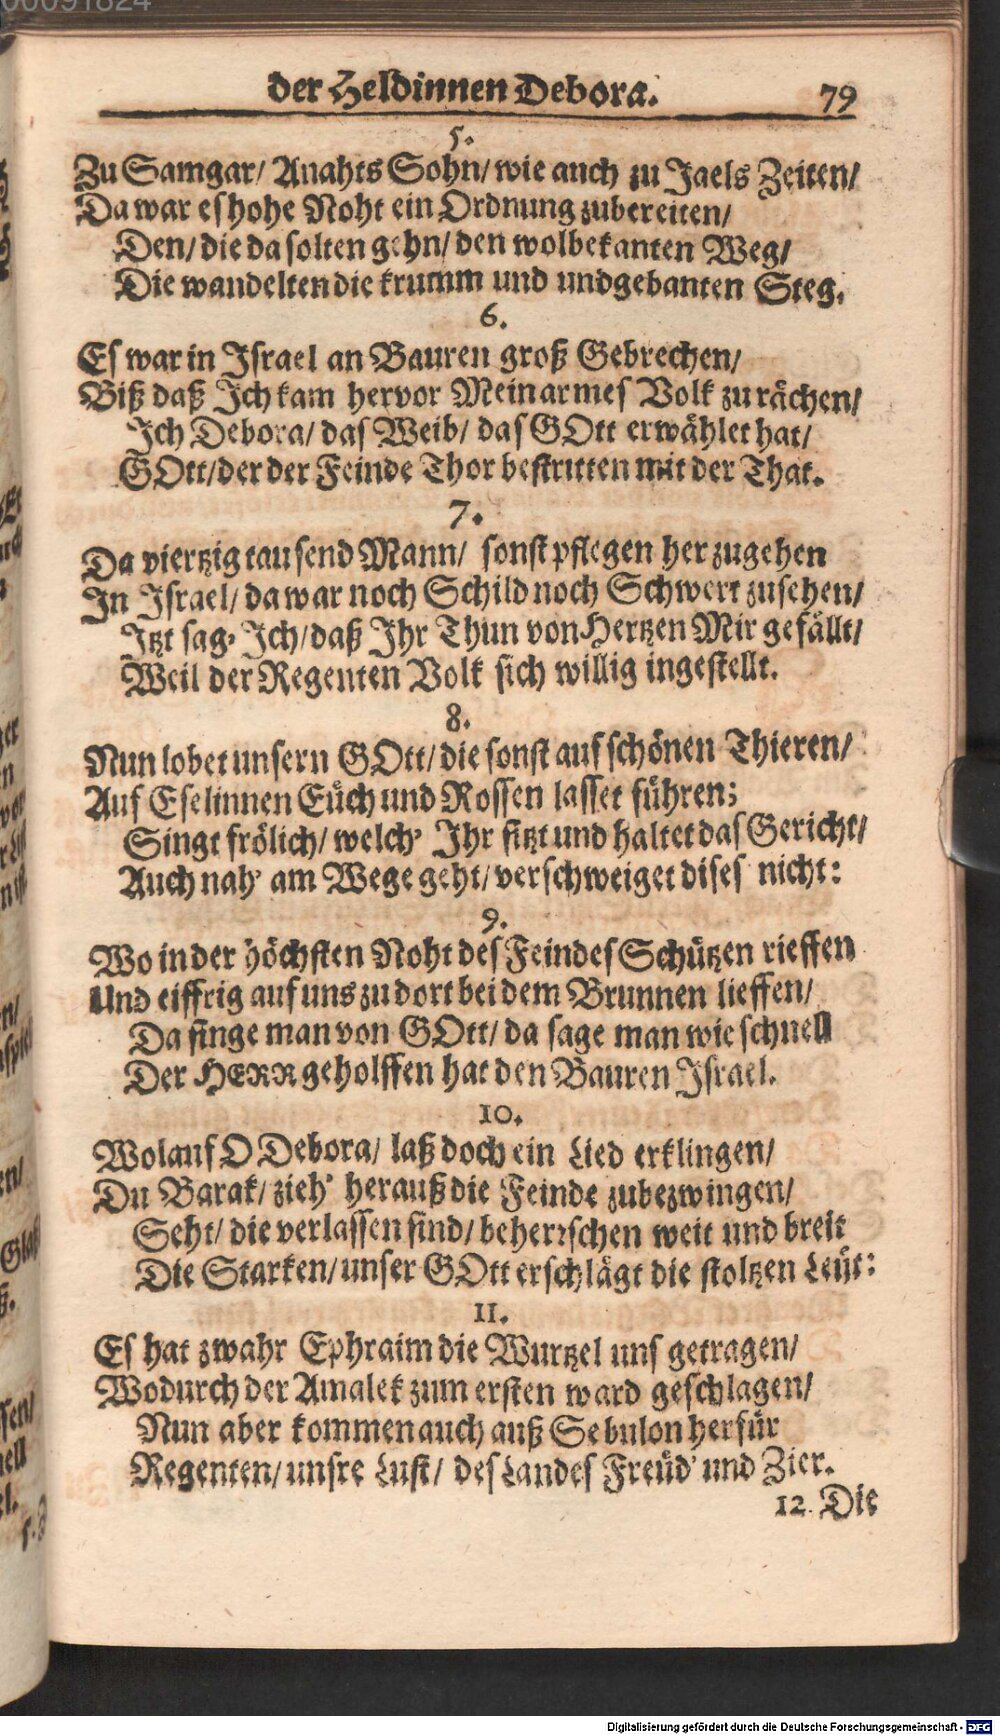 00091824
der Heldinnen Debora. 79
5.
Zu Samgar/ Anahts Sohn/ wie auch zu Jaels Zeiten/
Da war es hohe Noht ein Ordnung zubereiten/
Den/ die da solten gehn/ den wolbekanten Weg/
Die wandelten die krumm und undgebanten Steg.
6.
Es war in Israel an Bauren groß Gebrechen/
Biß daß Ich kam hervor Mein armes Volk zu rächen/
Ich Debora/ das Weib/ das GOtt erwählet hat/
GOtt/ der der Feinde Thor bestritten mit der That.
7.
Da viertzig tausend Mann/ sonst pflegen her zugehen
In Israel/ da war noch Schild noch Schwert zusehen/
Itzt sag' Ich/ daß Ihr Thun von Hertzen Mir gefällt/
Weil der Regenten Volk sich willig ingestellt.
8.
Nun lobet unsern GOtt/ die sonst auf schönen Thieren/
Auf Eselinnen Eüch und Rossen lasset führen;
Singt frölich/ welch' Ihr sitzt und haltet das Gericht/
Auch nah' am Wege geht/ verschweiget dises nicht:
9.
Wo in der höchsten Noht des Feindes Schützen rieffen
Und eiffrig auf uns zu dort bei dem Brunnen lieffen/
Da singe man von GOtt/ da sage man wie schnell
Der HERR geholffen hat den Bauren Israel.
10.
Wolauf O Debora/ laß doch ein Lied erklingen/
Du Barak/ zieh' herauß die Feinde zubezwingen/
Seht/ die verlassen sind/ beherrschen weit und breit
Die Starken/ unser GOtt erschlägt die stoltzen Leüt:
11.
Es hat zwahr Ephraim die Wurtzel uns getragen/
Wodurch der Amalek zum ersten ward geschlagen/
Nun aber kommen auch auß Sebulon herfür
Regenten/ unsre Lust/ des Landes Freüd' und Zier.
12. Die
Digitalisierung gefördert durch die Deutsche Forschungsgemeinschaft - DFG